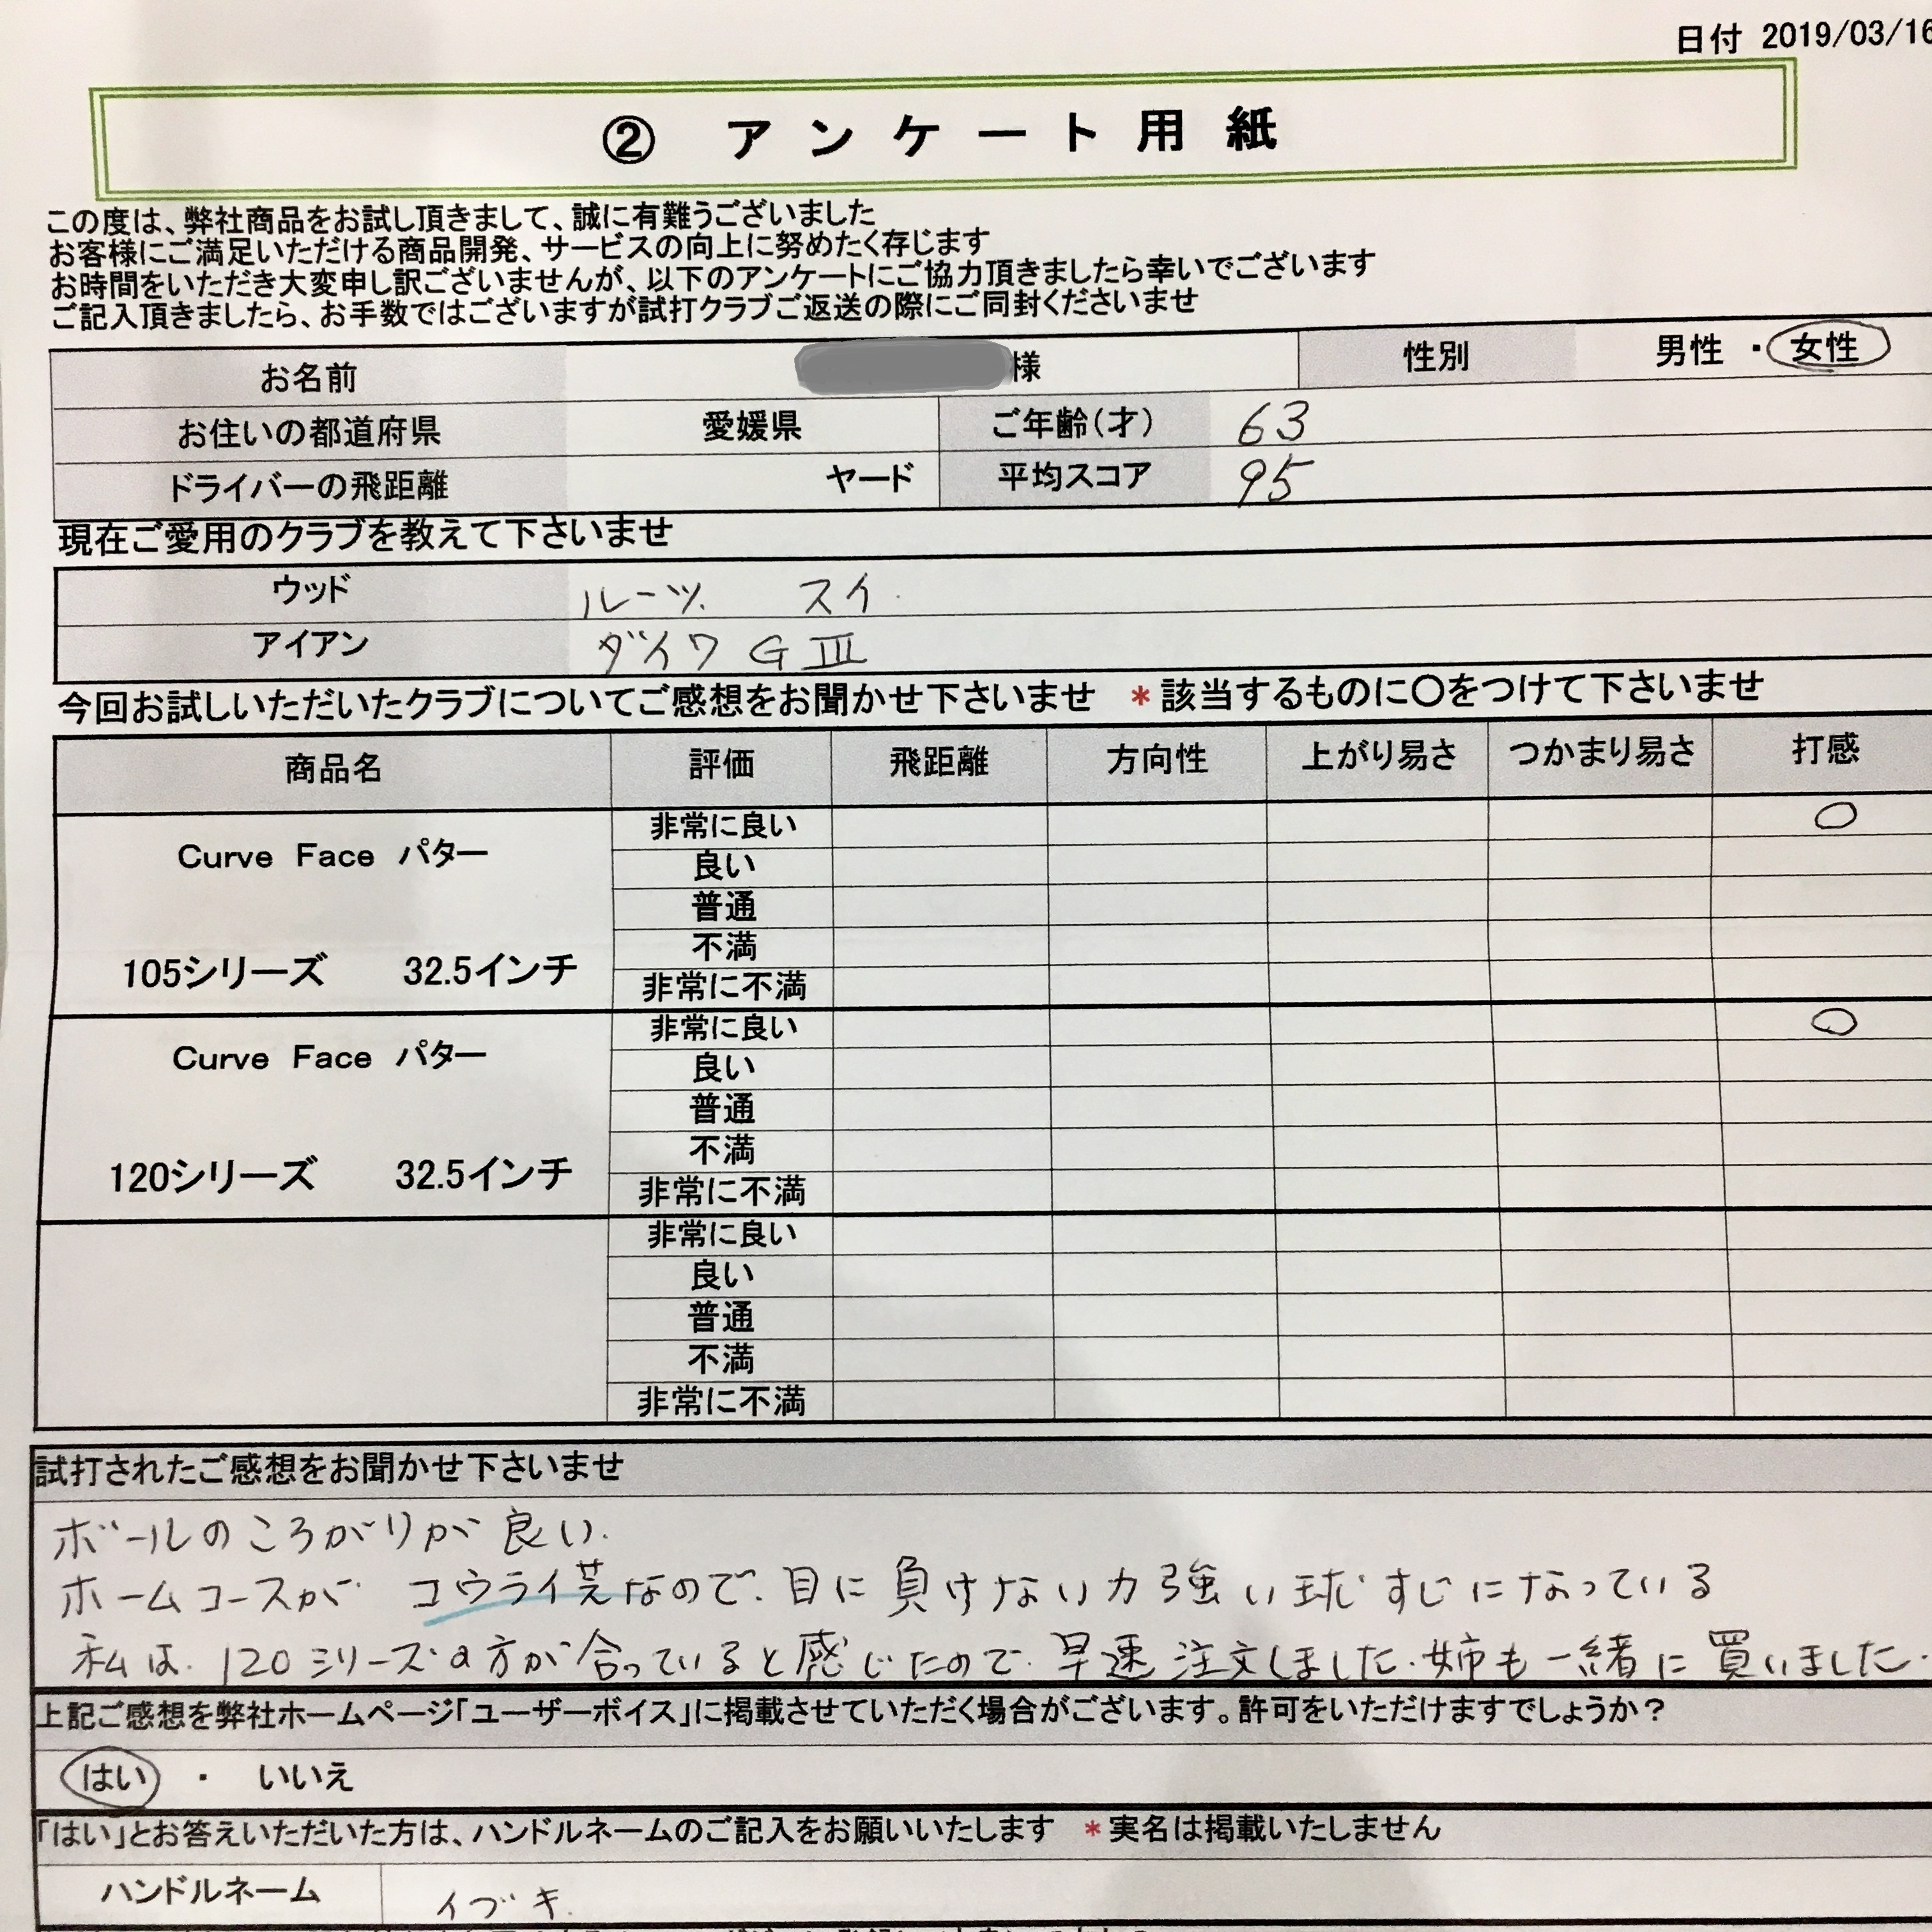 日付 2019/03/16
② アンケート用紙
この度は、弊社商品をお試し頂きまして、誠に有難うございました
お客様にご満足いただける商品開発、サービスの向上に努めたく存じます
お時間をいただき大変申し訳ございませんが、以下のアンケートにご協力頂きましたら幸いでございます
ご記入頂きましたら、お手数ではございますが試打クラブご返送の際にご同封くださいませ
お名前 様 性別 男性 ・ 女性
お住いの都道府県 愛媛県 ご年齢(才) 63
ドライバーの飛距離 ヤード 平均スコア 95
現在ご愛用のクラブを教えて下さいませ
ウッド ルーツ スイ
アイアン ダイワ GⅢ
今回お試しいただいたクラブについてご感想をお聞かせ下さいませ *該当するものに〇をつけて下さいませ
商品名 評価 飛距離 方向性 上がり易さ つかまり易さ 打感
Curve Face パター
105シリーズ 32.5インチ
非常に良い 〇
良い
普通
不満
非常に不満
Curve Face パター
120シリーズ 32.5インチ
非常に良い 〇
良い
普通
不満
非常に不満
非常に良い
良い
普通
不満
非常に不満
試打されたご感想をお聞かせ下さいませ
ボールのころがりが良い.
ホームコースが コウライ芝なので、目に負けない力強い球すじになっている
私は、120シリーズの方が合っていると感じたので、早速注文しました.姉も一緒に買いました.
上記ご感想を弊社ホームページ「ユーザーボイス」に掲載させていただく場合がございます。許可をいただけますでしょうか?
はい ・ いいえ
「はい」とお答えいただいた方は、ハンドルネームのご記入をお願いいたします *実名は掲載いたしません
ハンドルネーム イブキ